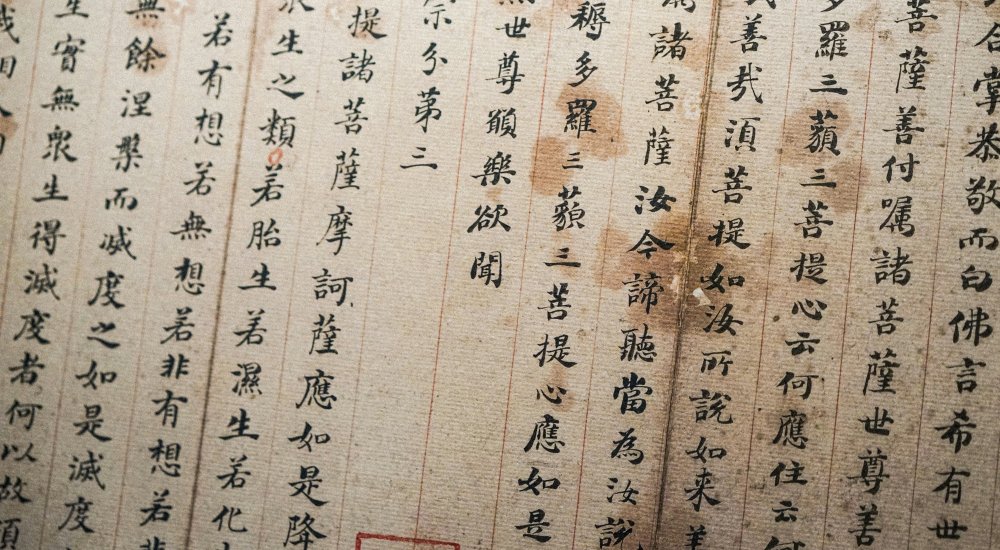 合掌恭敬而白佛言希有世
菩薩善付囑諸菩薩世尊善
多羅三藐三菩提心云何應住云何
哉善哉須菩提如汝所說如来善
諸菩薩汝今諦聽當為汝說
耨多羅三藐三菩提心應如是
世尊願樂欲聞
宗分苐三
提諸菩薩摩訶薩應如是降
衆生之類若胎生若濕生若化
若有想若無想若非有想若非
無餘涅槃而滅度之如是滅度
生實無衆生得滅度者何以故須
我相人